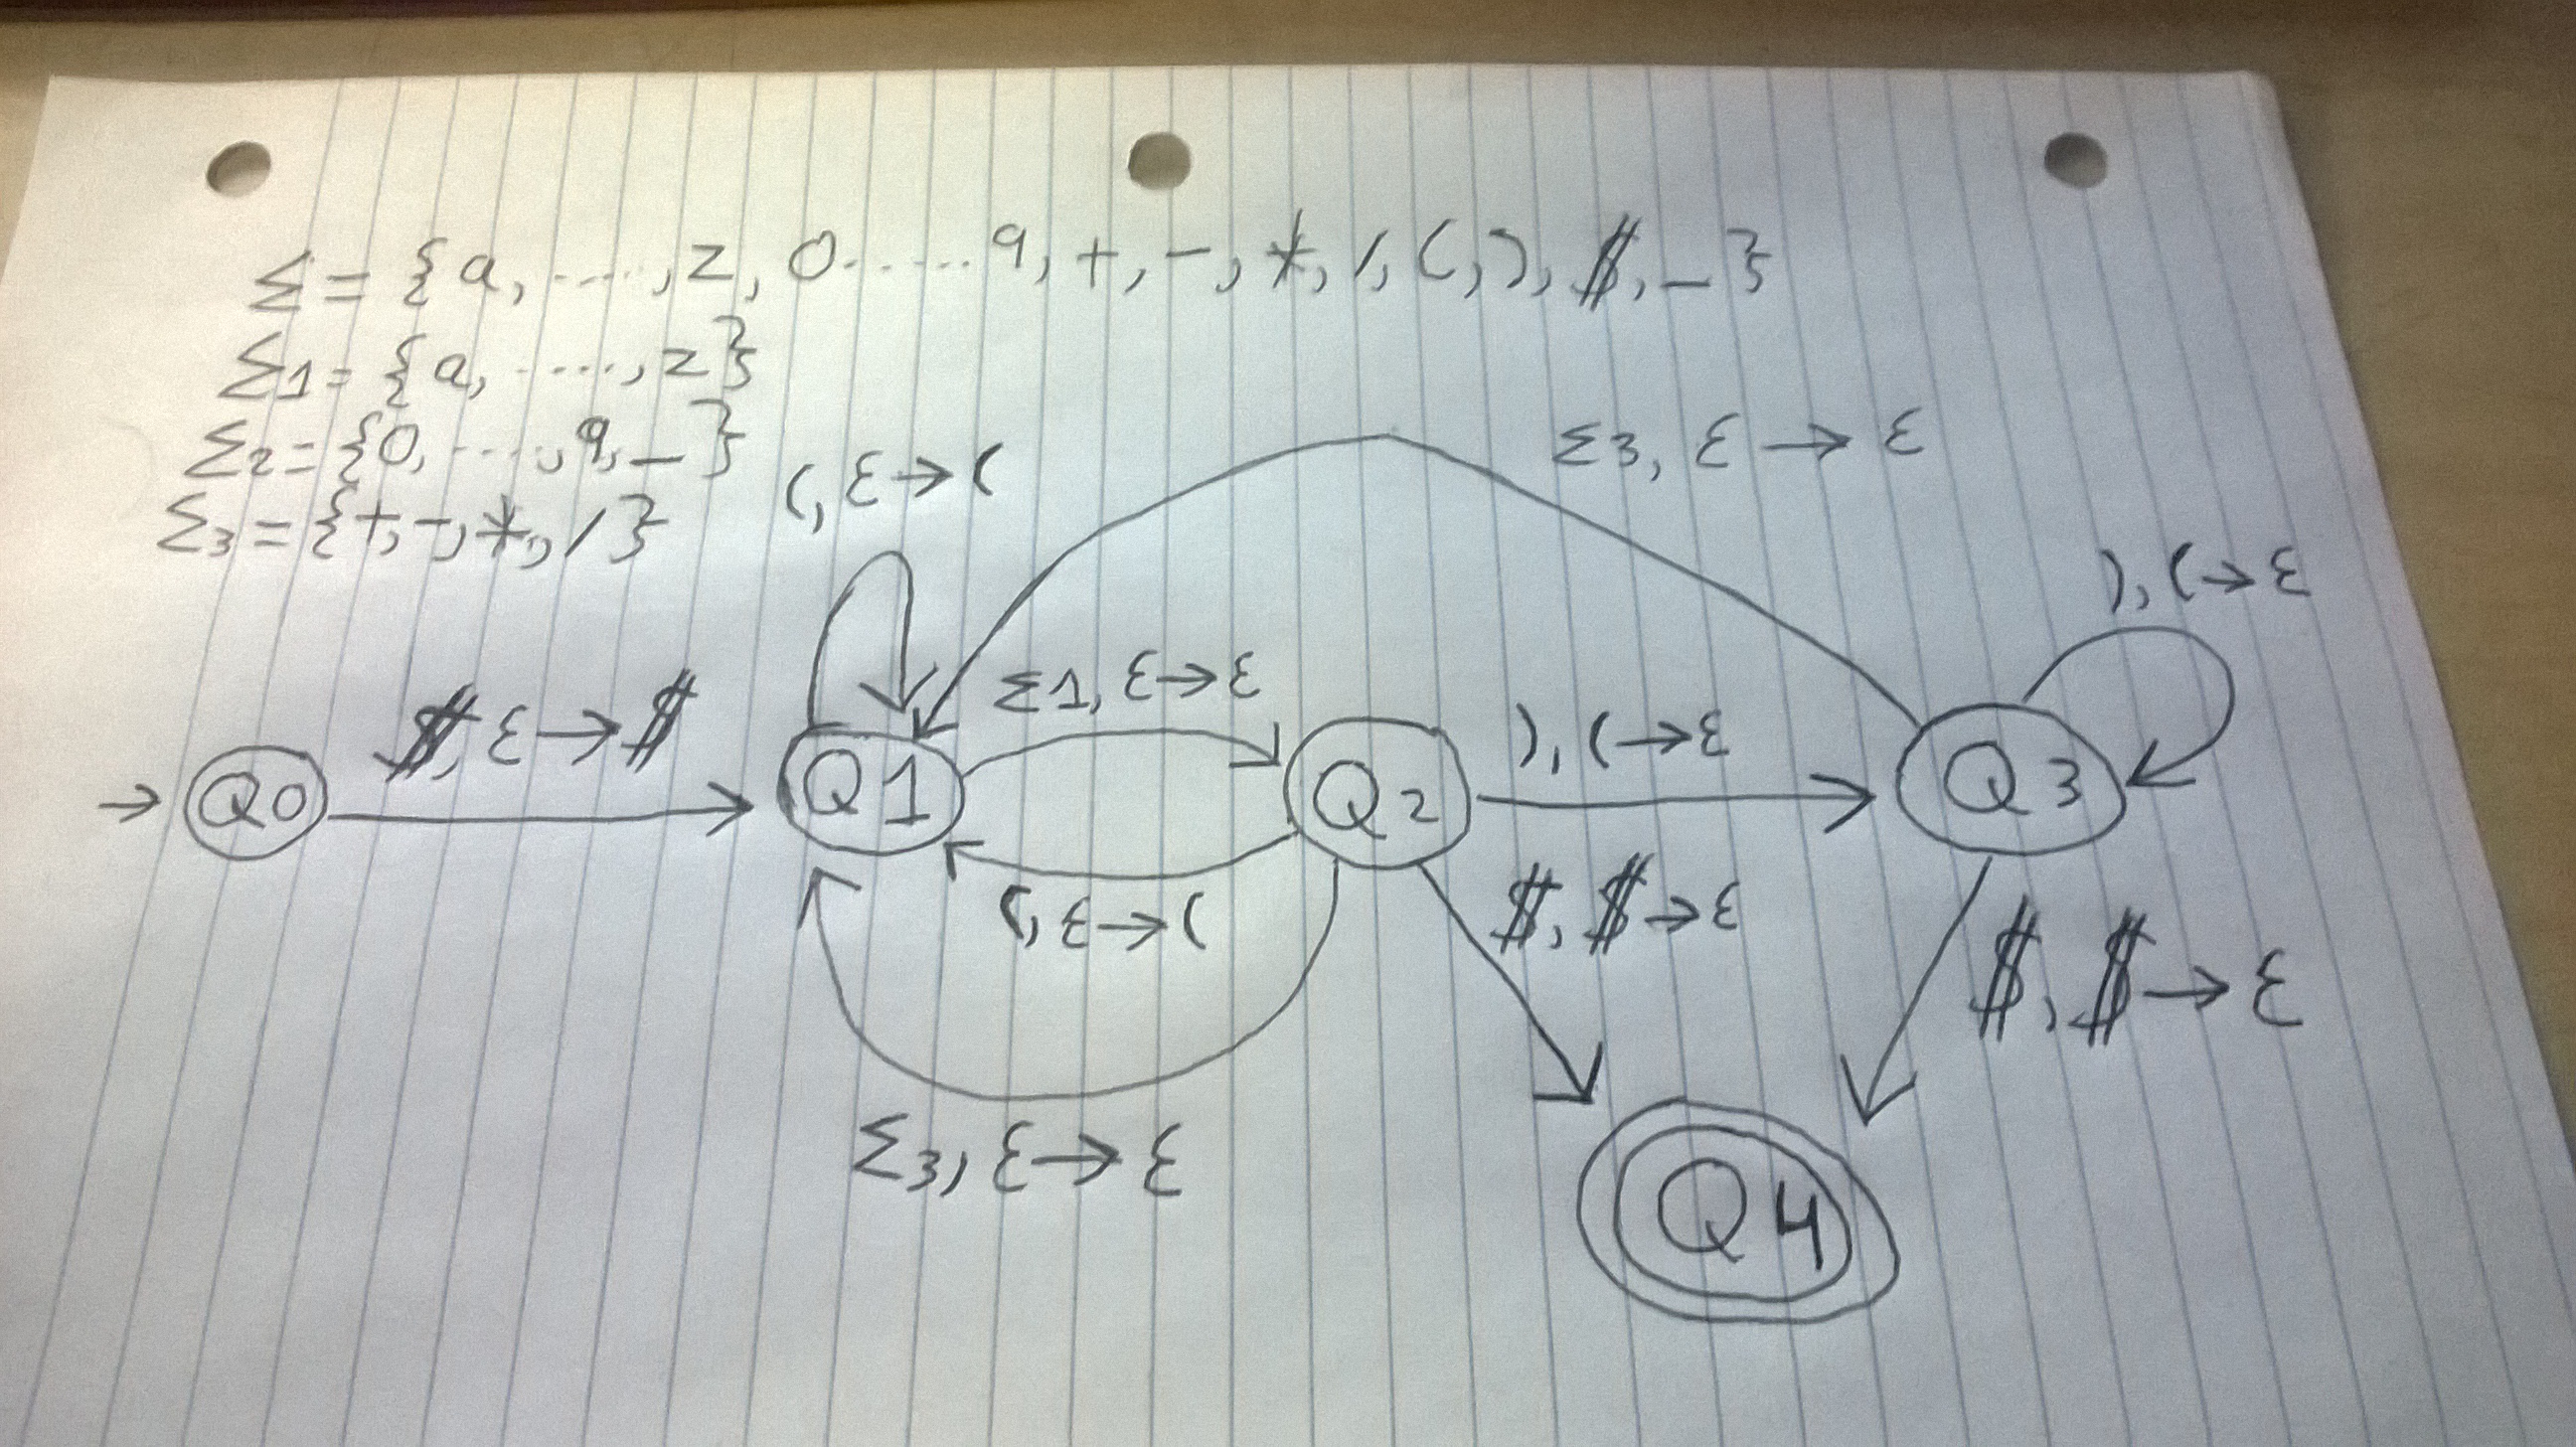 Σ = {a, ....., z, 0......9, +, -, *, /, (, ), $, _}
Σ1 = {a, ....., z}
Σ2 = {0, ....., 9, _}
Σ3 = {+, -, *, /}
(, ε → (
Σ3, ε → ε
), ( → ε
$, ε → $
Σ1, ε → ε
), ( → ε
Q0
Q1
Q2
Q3
(, ε → (
$, $ → ε
$, $ → ε
Σ3, ε → ε
Q4